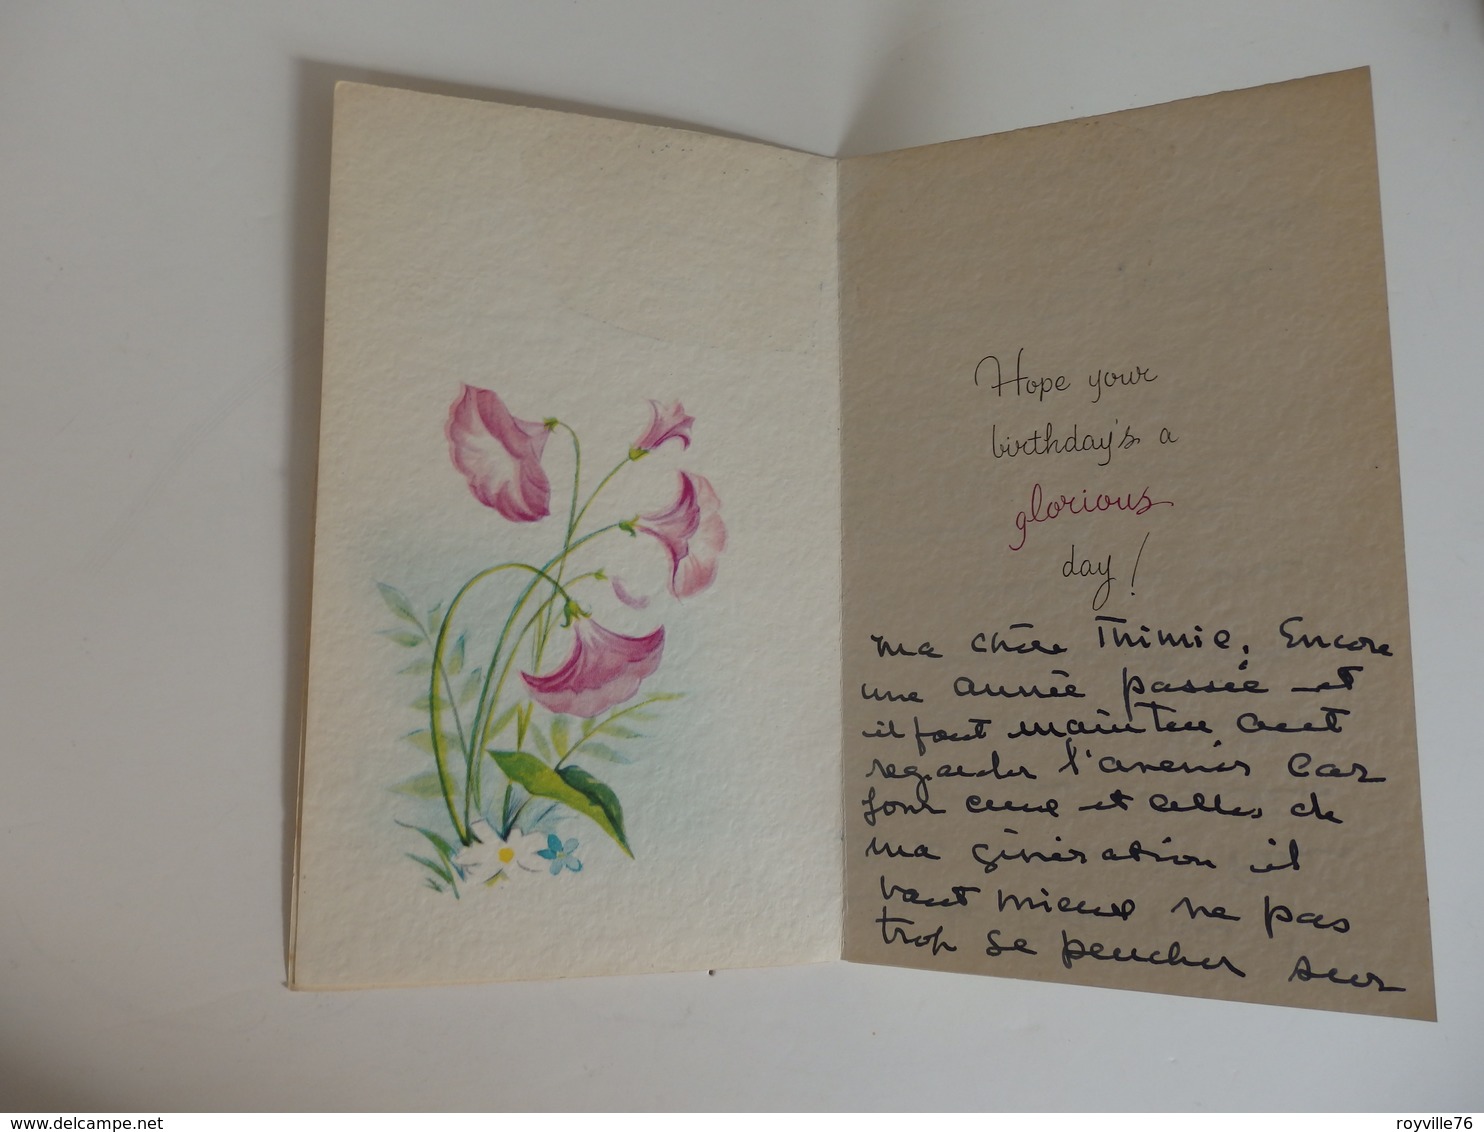 Hope your
birthday's a
glorious
day!
ma chère Thimie, Encore
une année passée et
il faut maintenant
regarder l'avenir car
pour ceux et celles de
ma génération il
vaut mieux ne pas
trop se pencher sur
delcampe.net
royville76